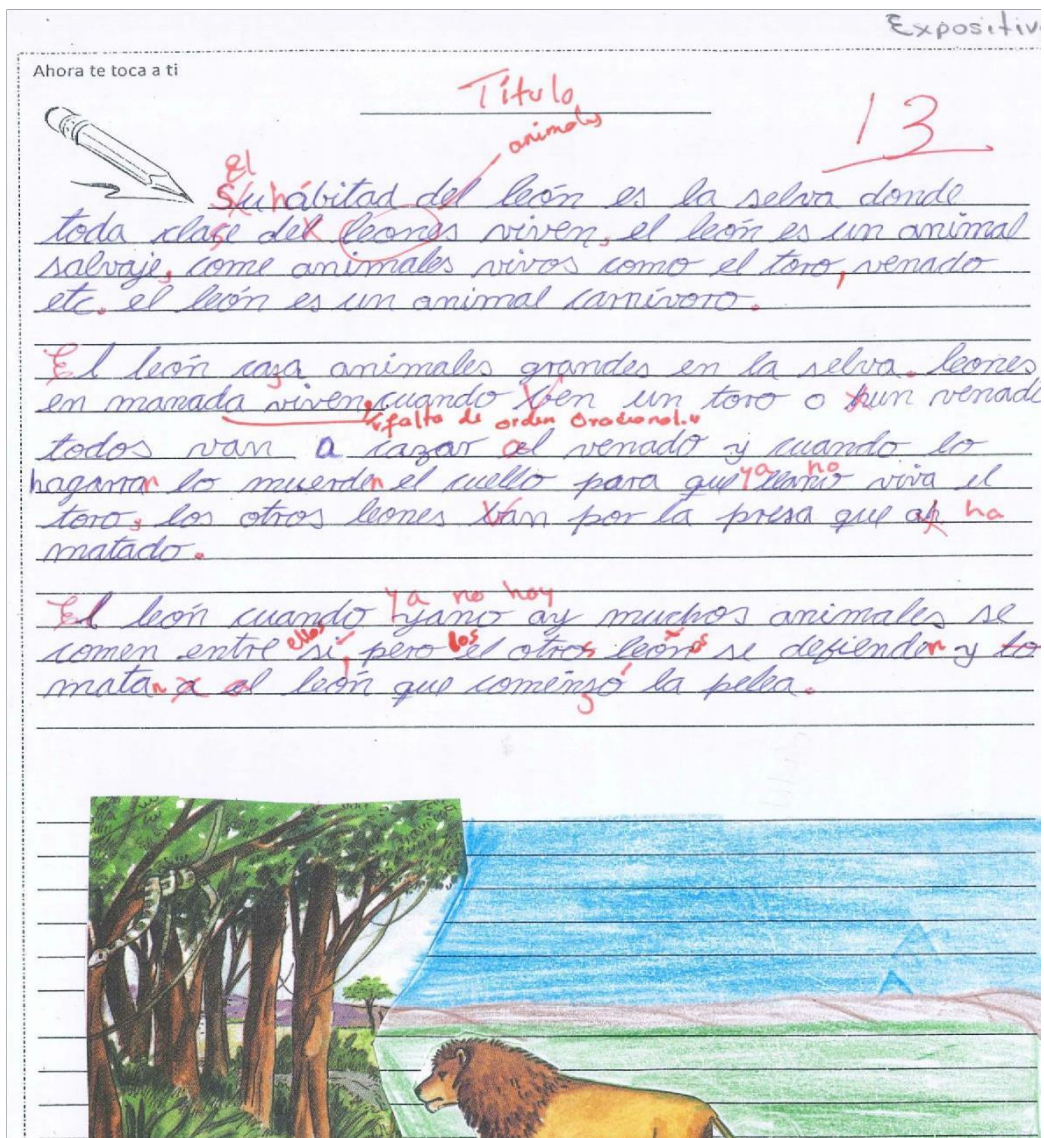 Expositiv
Ahora te toca a ti
Título
13
animales
El
Su hábitad del león es la selva donde
toda clase del leones viven, el león es un animal
salvaje, come animales vivos como el toro, venado
etc. el león es un animal carnívoro.
El león caza animales grandes en la selva. leones
en manada viven, cuando ven un toro o hun venado
"falta de orden oracional."
todos van a cazar al venado y cuando lo
hagarran lo muerden el cuello para que ya no viva el
toro, los otros leones van por la presa que ah ha
matado.
ya no hay
El león cuando yano ay muchos animales se
ellos los
comen entre si, pero el otros leones se defienden y lo
matan a al león que comenzó la pelea.